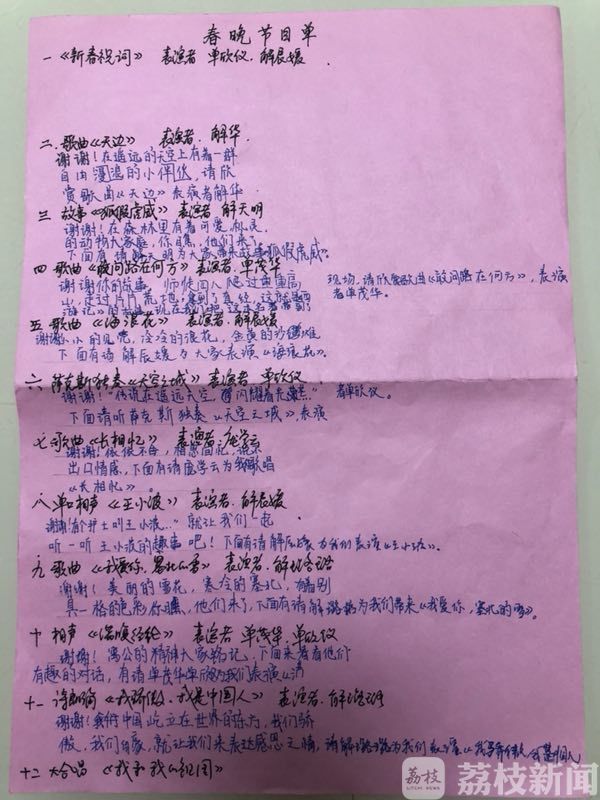 春晚节目单
一《新春祝词》 表演者 单欣仪.解辰媛.
二.歌曲《天边》 表演者.解华
谢谢!在遥远的天空上有着一群
自由漫游的小伴侣,请欣
赏歌曲《天边》表演者解华.
三 故事《狐假虎威》表演者 解天明
谢谢!在森林里有着可爱
的动物大家庭,你瞧,他们来了
下面有请解天明为大家带来故事狐假虎威》
四 歌曲《敢问路在何方》表演者.单茂华
谢谢你的故事,师徒四人爬过重重高
山,走过片片荒地,拿到了真经,这就是西
游记》的故事,现在
现场,请欣赏歌曲《敢问路在何方》,表演
者单茂华.
五.歌曲《海浪花》表演者.解辰媛
谢谢!小小的贝壳,冷冷的浪花,金黄的沙滩
下面有请解辰媛为大家表演《海浪花》.
六.萨克斯独奏《天空之城》表演者.单欣仪
谢谢!"传说在遥远天空,
下面请听萨克斯独奏《天空之城》,表演
者单欣仪.
七.歌曲《长相忆》 表演者.庞学云
谢谢!依依不舍,相思回忆,流
出口情感,下面有请庞学云为我歌唱
《长相忆》.
八.单口相声《王小波》 表演者.解辰媛
谢谢!有个护士叫王小波..."就让我们一起
听一听王小波的趣事吧!下面有请解辰媛为我们表演《王小波》.
九.歌曲《我爱你,塞北的雪》表演者.解
谢谢!美丽的雪花,寒冷的塞北,有着别
具一格的色彩你瞧,他们来了,下面有请解 为我们带来《我爱你,塞北的雪》.
十 相声《满腹经纶》 表演者 单茂华.单欣仪
谢谢!寓公的精神大家铭记,下面来看看他们
有趣的对话,有请单茂华单欣仪为我们表演《满
十一 诗朗诵《我骄傲,我是中国人》 表演者.解
谢谢!我们中国屹立在世界的东方,我们骄
傲,我们自豪,就让我们来表达感恩之情,请解 为我们表演《我骄傲,我是中国人》
十二 大合唱 《我和我的祖国》
荔枝
LITCHI NEWS
荔枝新闻